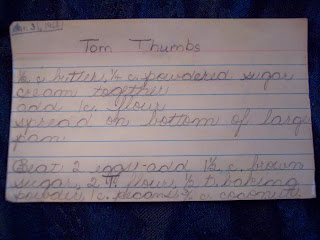 Tom Thumbs
½ c butter, ½ c. powdered sugar
cream together
add 1 c. flour
spread on bottom of large
pan
Beat 2 eggs-add 1½ c. brown
sugar, 2 T. flour, ½ t. baking
powder, 1 c. pecans ½ c. coconut